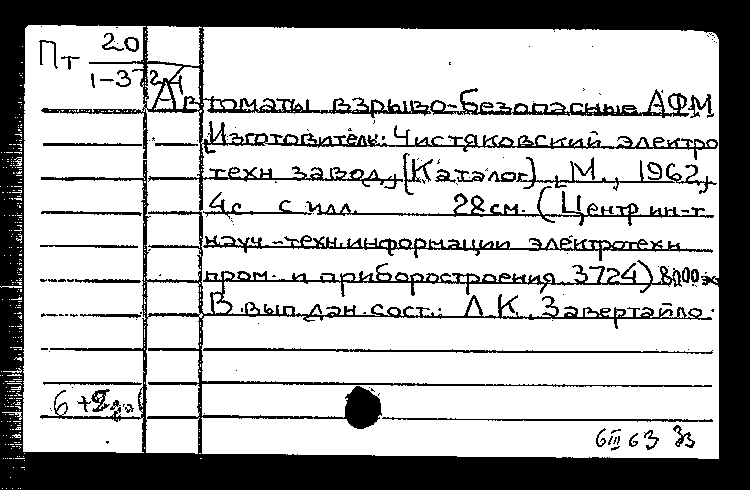 Пт 20
1-3724
Автоматы взрыво-безопасные АФМ
[Изготовитель: Чистяковский электро
техн завод, [Каталог], М., 1962,
4с. с илл. 28см. (Центр ин-т
науч.-техн.информации электротехн
пром. и приборостроения 3724) 8000 эк
В вып. дан. сост.: Л.К. Завертайло.
6 +
6 III 63 Зз